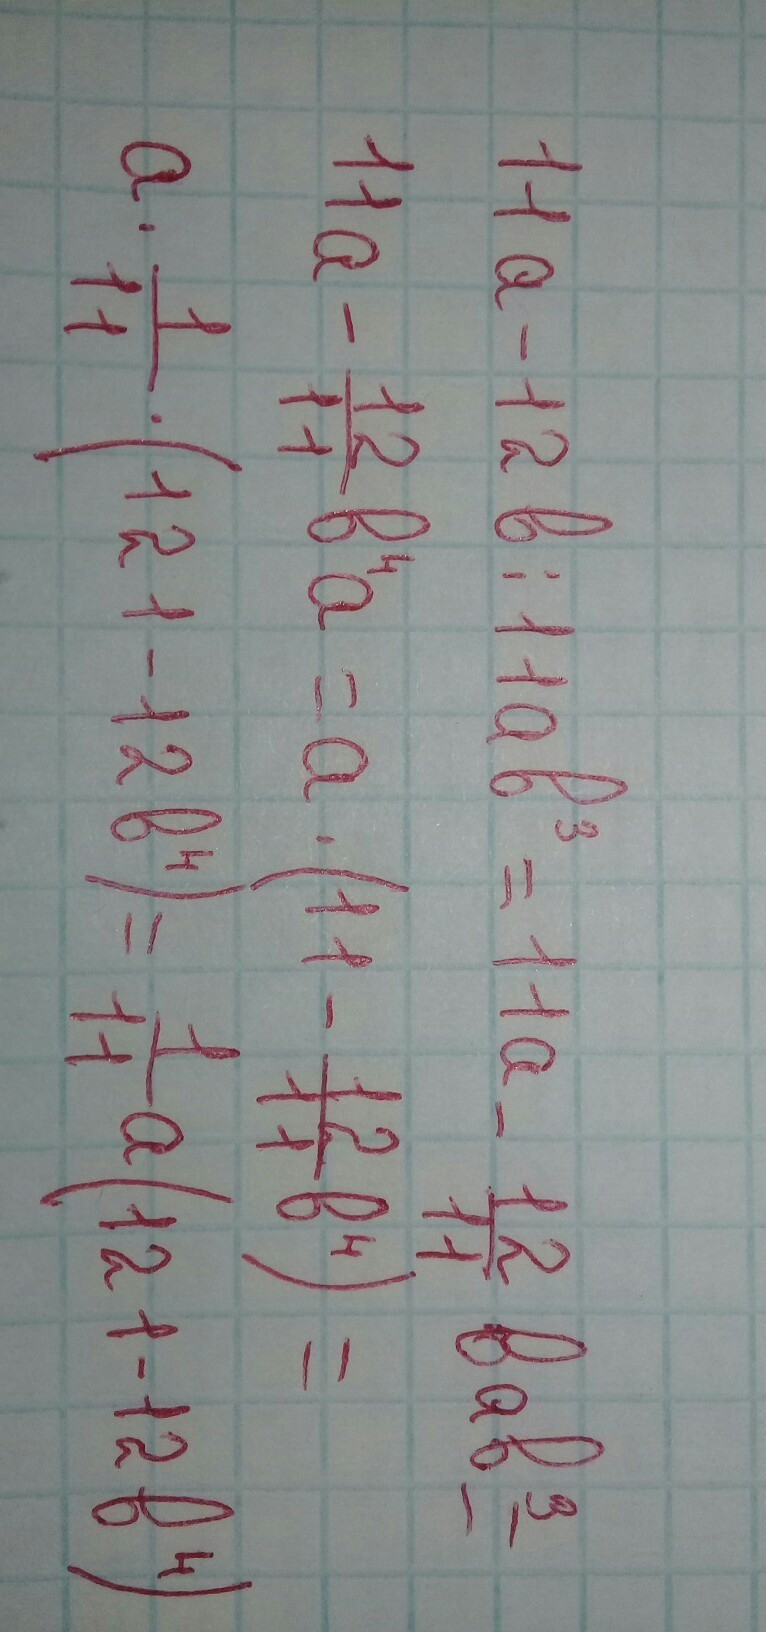 11a - 12b : 11ab³ = 11a - 12/11 bab³ =
11a - 12/11 b⁴a = a · (11 - 12/11 b⁴) =
a · 1/11 · (121 - 12b⁴) = 1/11 a(121 - 12b⁴)